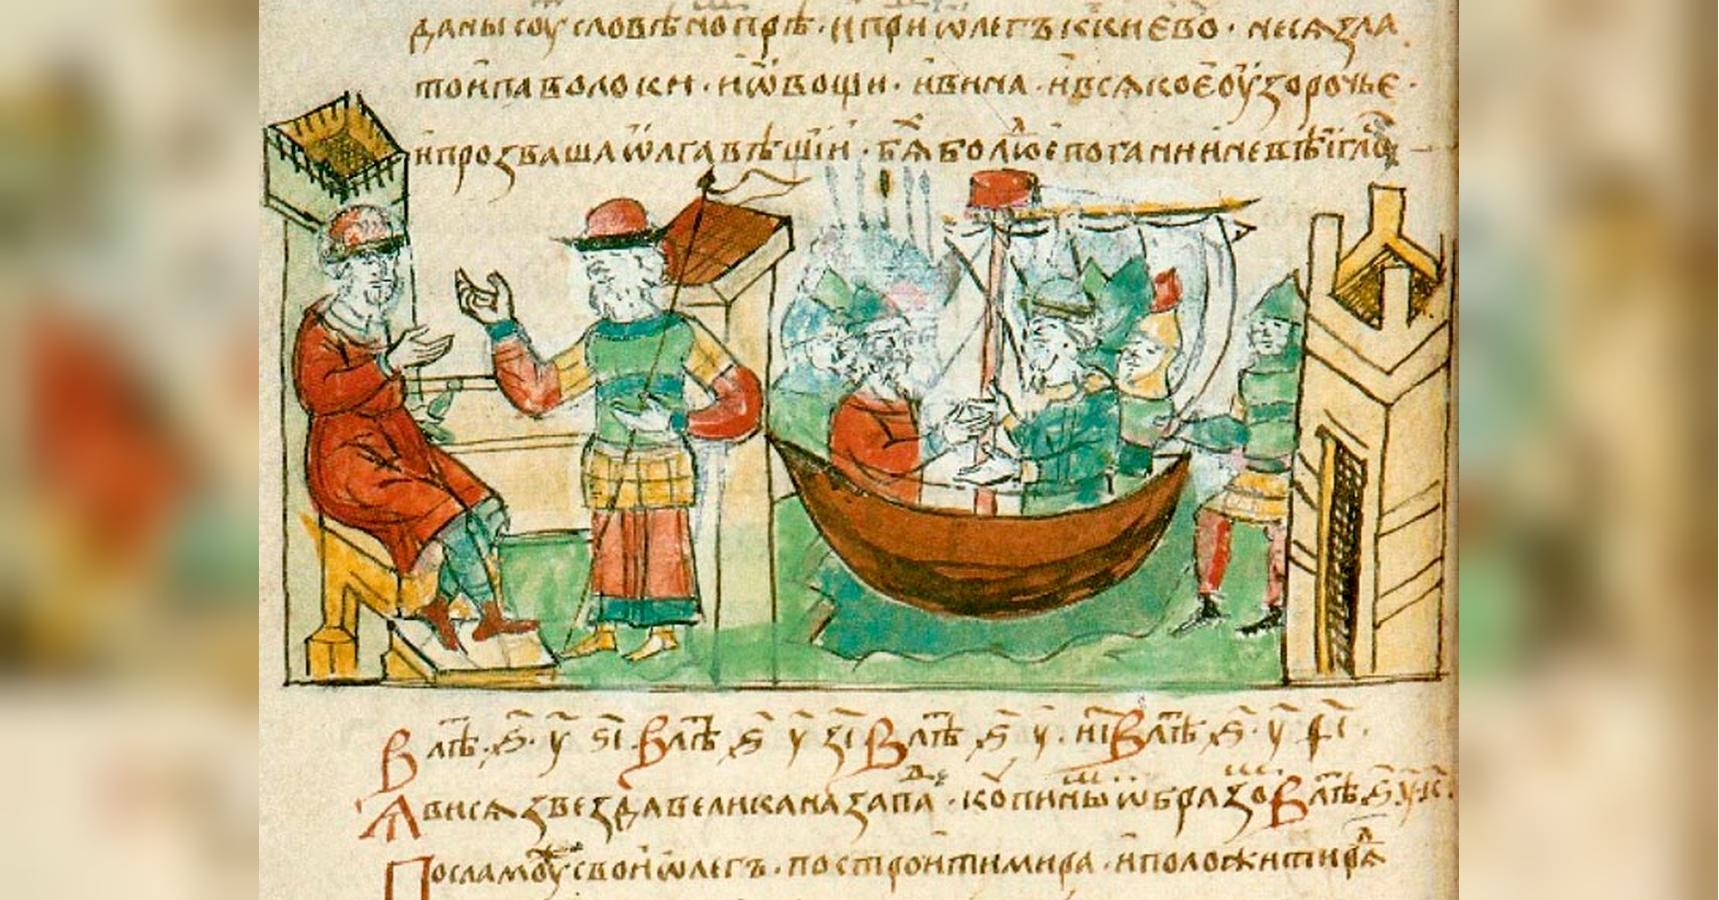 даны соу словѣ но прѣ · и прї ѡлегъ к києво · неся зла
то и паволоки · и ѡвощи · и вина · и всякоє оузорочьє ·
и прозваша ѡлга вѣщїи · бя бо людїє погани и невѣигло
В лѣⷮ · ѕ҃ · у҃ · ѕ҃і В лѣⷮ ѕ҃ у҃ з҃і В лѣⷮ ѕ҃ у҃ · и҃і В лѣⷮ ѕ҃ · у҃ ѳ҃і ·
Явися звезда велика на запаⷣ · копиным ѡбразо В лѣⷮ ѕ҃ у҃ к҃ ·
Посла моу свои ѡлегъ · построити мира · и положити ряⷣ